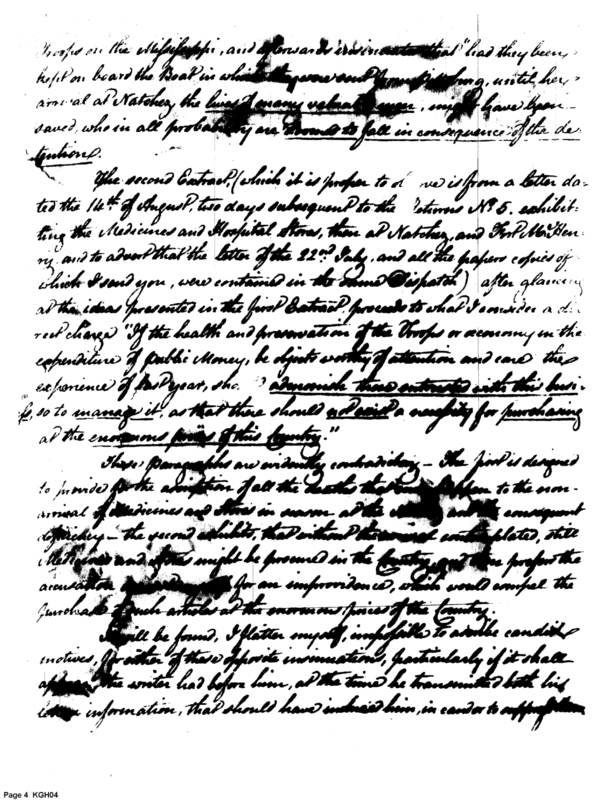 Troops on the Mississippi, and afterwards insinuates that "had they been
kept on board the Boat in which they were sent from Pittsburg, until her
arrival at Natchez, the lives of many valuable men, might have been
saved, who in all probability are doomed to fall in consequence of the de
tention.
The second Extract, (which it is proper to ob ve is from a letter da-
ted the 14th of August, two days subsequent to the Returns No. 5. exhibit-
ting the Medicines and Hospital Stores, then at Natchez, and Fort McHen-
ry, and to advert that the letter of the 22nd July, and all the papers copies of
which I send you, were contained in the same Dispatch) after glancing
at the ideas presented in the first Extract, proceeds to what I consider a di-
rect charge "If the health and preservation of the Troops or œconomy in the
expenditure of public Money, be objects worthy of attention and care the
experience of last year, sho d admonish those entrusted with this busi-
ness, so to manage it, as that there should not exist a necessity for purchasing
at the enormous prices of this Country."
These Paragraphs are evidently contradictory — The first is designed
to provide for the ascription of all the deaths that happen to the non-
arrival of Medicines and Stores in season at the and the consequent
deficiency — the second exhibits, that without the contemplated, still
Medicines and Stores might be procured in the Country, and then prefers the
accusation for an improvidence, which would compel the
purchase of such articles at the enormous prices of the Country.
It will be found, I flatter myself, impossible to ascribe candid
motives, for either of these opposite insinuations, particularly if it shall
appear the writer had before him, at the time he transmitted both his
information, that should have induced him, in candor to suppress them
Page 4 KGH04